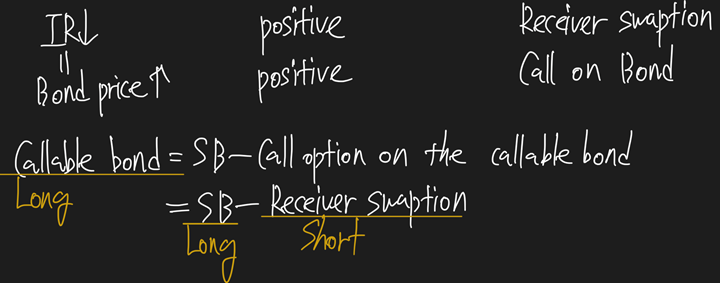 IR↓ positive Receiver swaption
=
Bond price↑ positive Call on Bond
Callable bond = SB - Call option on the callable bond
Long
= SB - Receiver swaption
Long Short